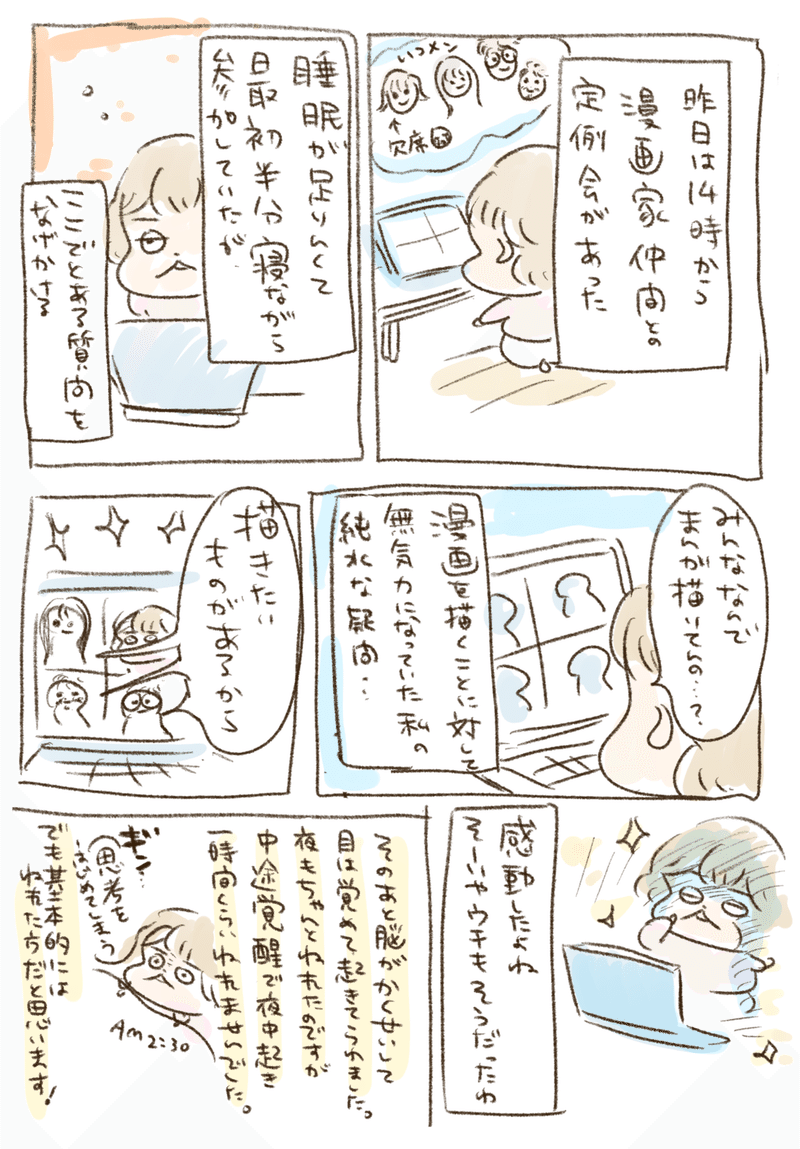 昨日は14時から
漫画家仲間との
定例会があった
いつメン
欠席
睡眠が足りんくて
最初半分寝ながら
参加していたが
ここでとある質問を
なげかける
みんななんで
まんが描いてんの…?
漫画を描くことに対して
無気力になっていた私の
純水な疑問…
描きたい
ものがあるから
感動したよね
そーいやウチもそうだったわ
そのあと脳がかくせいして
目は覚めて起きてられました。
夜もちゃんとねれたのですが
中途覚醒で夜中起き
一時間くらいねれませんでした。
ギン!
思考を
はじめてしまう
AM2:30
でも基本的には
ねれた方だと思います!